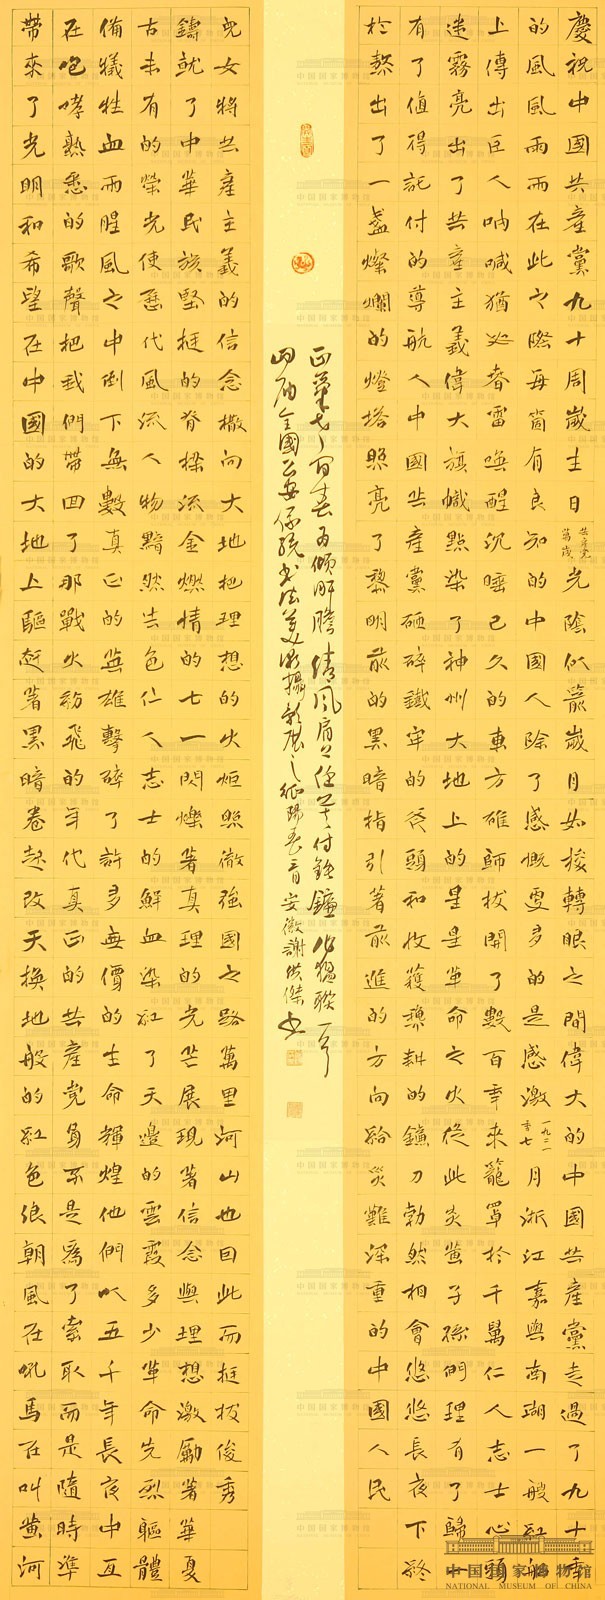 慶祝中國共產黨九十周歲生日共產党萬歲光陰似箭歲月如梭轉眼之間偉大的中國共產黨走過了九十年
的風風雨雨在此之際每箇有良知的中國人除了感慨更多的是感激一九二一年七月浙江嘉興南湖一艘紅船
上傳出巨人吶喊猶如春雷喚醒沉睡已久的東方雄師拔開了數百年來籠罩於千萬仁人志士心頭
迷霧亮出了共產主義偉大旗幟點染了神州大地上的星星革命之火從此炎黃子孫們理有了歸
有了值得託付的導航人中國共產黨砸碎鐵牢的斧頭和收穫耕的鐮刀勃然相會悠悠長夜下終
於熬出了一盞燦爛的燈塔照亮了黎明前的黑暗指引著前進的方向給災難深重的中國人民
全國公安系統書法美術攝影展之 安徽謝洪傑書
帶來了光明和希望在中國的大地上驅趕著黑暗卷起改天換地般的紅色浪朝風在吼馬在叫黃河
在咆哮熟悉的歌聲把我們帶回了那戰火紛飛的年代真正的共產党員不是為了索取而是隨時準
備犧牲血雨腥風之中倒下無數真正的英雄擊碎了許多無價的生命輝煌他們以五千年長夜中亙
古未有的榮光使歷代風流人物黯然失色仁人志士的鮮血染紅了天邊的雲霞多少革命先烈軀體
鑄就了中華民族堅挺的脊樑流金燃情的七一閃爍著真理的光芒展現著信念與理想激勵著華夏
兒女將共產主義的信念撒向大地把理想的火炬照徹強國之路萬里河山也因此而挺拔俊秀
中国国家博物馆
NATIONAL MUSEUM OF CHINA